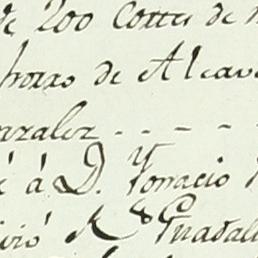 de 200 Cortes de
de Alcav
nzalez - - - -
é á D. Ygnacio
ivió R.s Guadal